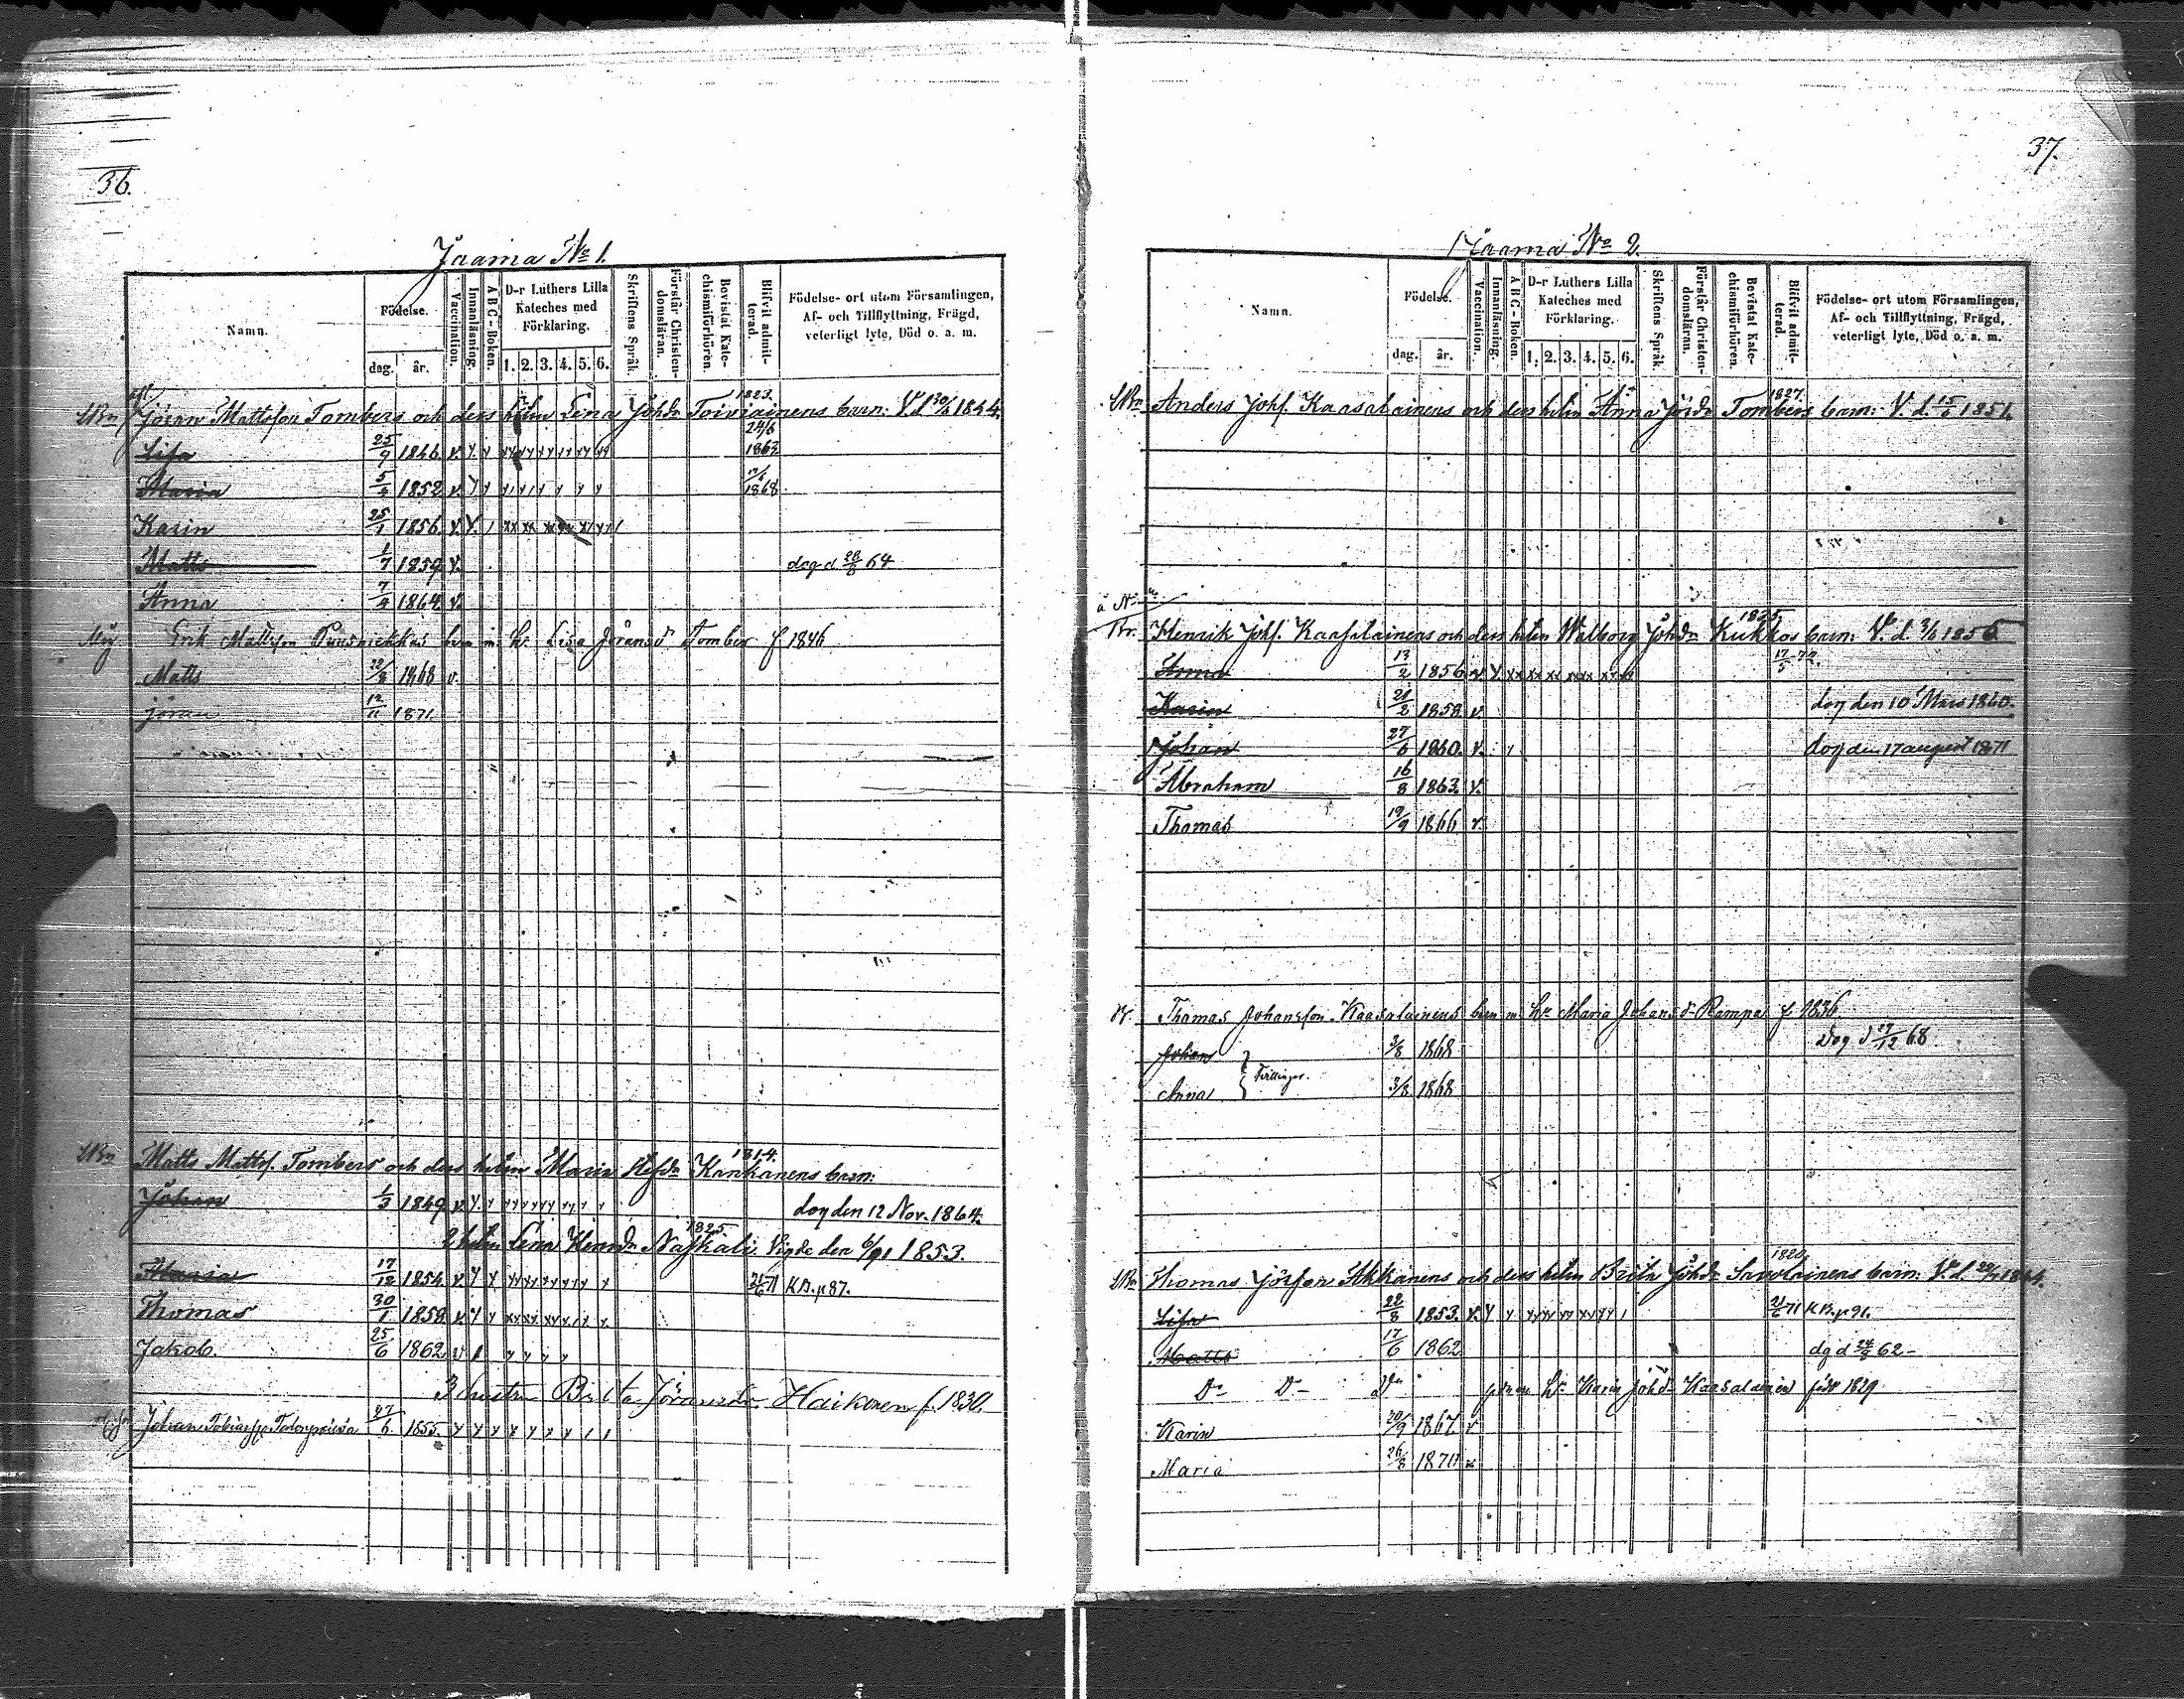 36.
Jaama No 1.
Namn.
Födelse.
dag.
år.
Vaccination.
Innanläsning.
A B C - Boken.
D-r Luthers Lilla Kateches med Förklaring.
1. 2. 3. 4. 5. 6.
Skriftens Språk.
Förstår Christendomsläran.
Bevistat Katechismiförhören.
Blifvit admitterad.
Födelse- ort utom Församlingen, Af- och Tillflyttning, Frägd, veterligt lyte, Död o. a. m.
1823.
Jöran Mattsson Tombers och dess hustru Lena Johdr Toiviainens barn: V. d 30/6 1844.
Lisa 25/9 1846 v. 24/6 1863
Maria 1852 v. 1868
Karin 25/1 1856 v.
Matts 1/7 1859 v. dog d 28/8 64
Anna 7/9 1864 v.
Måg Erik Mattsson Puusniekkas barn m. h. Lisa Jöransdr Tomber f 1846
Matts 1868 v.
Jöran 12/11 1871
1814.
Matts Mattss. Tombers och dess hustru Maria Kankanens barn:
Johan 1/3 1849 v. dog den 12 Nov. 1864.
1825
2 hustru Lena Henrdr Naskali Vigde den 6/9 1853.
Maria 17/12 1854 v 71 K.B. p 87.
Thomas 30/1 1858 v.
Jakob. 25/6 1862 v
3 hustru Brita Jöransdr Haikonen f. 1830.
Johan Tobiasson 27/6 1855.
37.
Jaama No 2.
Namn.
Födelse.
dag.
år.
Vaccination.
Innanläsning.
A B C - Boken.
D-r Luthers Lilla Kateches med Förklaring.
1. 2. 3. 4. 5. 6.
Skriftens Språk.
Förstår Christendomsläran.
Bevistat Katechismiförhören.
Blifvit admitterad.
Födelse- ort utom Församlingen, Af- och Tillflyttning, Frägd, veterligt lyte, Död o. a. m.
1827.
Anders Johs. Kaasalainens och dess hustru Anna Jördr Tombers barn: V. d. 15/6 1851.
1835
Br. Henrik Johs. Kaasalainens och dess hustru Walborg Johdr Kukkos barn: V. d. 3/1 1855
Anna 13/2 1856 v. 17/5 72.
Karin 21/2 1858 v. dog den 10 Mars 1860.
Johan 27/6 1860. v. dog den 17 august 1871
Abraham 16/8 1863. v.
Thomas 19/9 1866 v.
Br. Thomas Johansson Kaasalainens barn m. h. Maria Johansdr Rampa f. 1836
Johan 3/8 1868 Dog d 17/12 68
Tvillingar.
Anna 3/8 1868
1820
Thomas Jörsson Akkanens och dess hustru Brita Johdr Savolainens barn: V. d. 1844.
Lisa 22/8 1853. v. 21/6 71 K.B. p 91.
Matts 17/6 1862 dg d 24/8 62-
Do Do Do h. Karin Johdr Kaasalainen född 1829
Karin 20/9 1867 v
Maria 26/8 1870